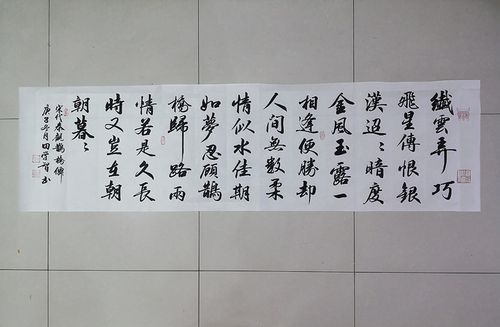 纖雲弄巧
飛星傳恨銀
漢迢〻暗度
金風玉露一
相逢便勝却
人間無數柔
情似水佳期
如夢忍顧鵲
橋歸路兩
情若是久長
時又豈在朝
朝暮〻
宋代秦觀鵲橋仙
庚子冬月田学智书